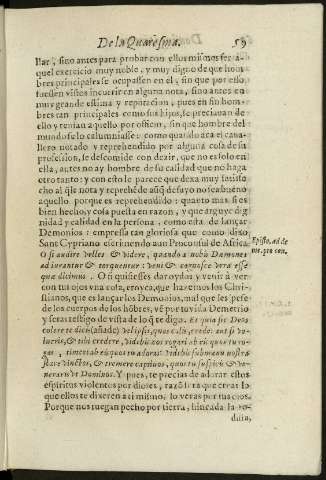 De la Quaresma. 59
llar, sino antes para probar con ellos mismos ser a-
quel exercicio muy noble, y muy digno de que hom-
bres principales se ocupassen en el, sin que por esso
fuessen vistos incurrir en alguna nota, sino antes en
muy grande estima y reputacion, pues en sin hom-
bres tan principales como sus hijos, se preciauan de
ello y tenian aquello por officio, sin que hombre del
mundo se lo calumniasse: como quando aca el caua-
llero notado y reprehendido por alguna cosa de su
profession, se descomide con dezir, que no es solo en
ella, antes no ay hombre de su calidad que no haga
otro tanto: y con esto le parece que dexa muy satisfe
cho al q̃ le nota y reprehẽde assi, q̃ de suyo no sea bueno
aquello porque es reprehendido: quanto mas si es
bien hecho, y cosa puesta en razon, y que arguye dig
nidad y calidad en la persona, como esta de lançar
Demonios: empressa tan gloriosa que como dixo
Sant Cypriano escriuendo a un Proconsul de Africa.
O si audire velles & videre, quando a nobis Damones
adiurantur & torquentur: veni & cognosce vera esse
quæ dicimus. O si quisiesses dar oydos y venir à ver
con tus ojos vna cosa, croyca, que hazemos los Chri-
stianos, que es lançar los Demonios, mal que les pese
de los cuerpos de los hõbres, vẽ por tu vida Demetrio
y seras testigo de vista de lo q̃ te digo. Et quia sic Deos
colere te dicis (añade) vel ipsis, quos colis, crede: aut si vo
lueris, & tibi credere, videbis nos rogari ab eis quos tu ro-
gas, timeri ab eis quos tu adoras: videbis sub manu nostra
stare vinctos, & tremere captiuos, quos tu suspicis & ve-
neraris vt Dominos. Y pues, te precias de adorar estos
espiritus violentos por dioses, razõ sera que creas lo
que ellos te dixeren a ti mismo, lo veras por tus ojos.
Porque nos ruegan pecho por tierra, hincada la ro-
dilla,
Episto. ad de
me. pro con.